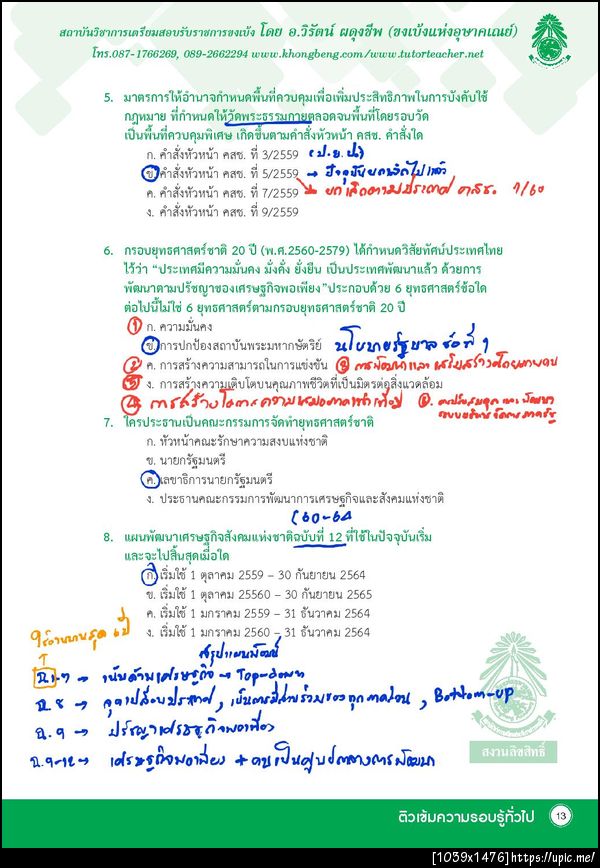 สถาบันวิชาการเตรียมสอบรับราชการขงเบ้ง โดย อ.วิรัตน์ ผดุงชีพ (ขงเบ้งแห่งอุษาคเณย์)
โทร.087-1766269, 089-2662294 www.khongbeng.com/www.tutorteacher.net
5. มาตรการให้อำนาจกำหนดพื้นที่ควบคุมเพื่อเพิ่มประสิทธิภาพในการบังคับใช้
กฎหมาย ที่กำหนดให้วัดพระธรรมกายตลอดจนพื้นที่โดยรอบวัด
เป็นพื้นที่ควบคุมพิเศษ เกิดขึ้นตามคำสั่งหัวหน้า คสช. คำสั่งใด
ก. คำสั่งหัวหน้า คสช. ที่ 3/2559
ข. คำสั่งหัวหน้า คสช. ที่ 5/2559 → ปัจจุบันยกเลิกไปแล้ว
ค. คำสั่งหัวหน้า คสช. ที่ 7/2559 → ยกเลิกตามประกาศ คสช.
ง. คำสั่งหัวหน้า คสช. ที่ 9/2559
6. กรอบยุทธศาสตร์ชาติ 20 ปี (พ.ศ.2560-2579) ได้กำหนดวิสัยทัศน์ประเทศไทย
ไว้ว่า “ประเทศมีความมั่นคง มั่งคั่ง ยั่งยืน เป็นประเทศพัฒนาแล้ว ด้วยการ
พัฒนาตามปรัชญาของเศรษฐกิจพอเพียง”ประกอบด้วย 6 ยุทธศาสตร์ข้อใด
ต่อไปนี้ไม่ใช่ 6 ยุทธศาสตร์ตามกรอบยุทธศาสตร์ชาติ 20 ปี
① ก. ความมั่นคง
ข. การปกป้องสถาบันพระมหากษัตริย์ นโยบายรัฐบาล ข้อที่ 1
② ค. การสร้างความสามารถในการแข่งขัน
⑤ ง. การสร้างความเติบโตบนคุณภาพชีวิตที่เป็นมิตรต่อสิ่งแวดล้อม
④ การสร้างโอกาสความเสมอภาค
7. ใครประธานเป็นคณะกรรมการจัดทำยุทธศาสตร์ชาติ
ก. หัวหน้าคณะรักษาความสงบแห่งชาติ
ข. นายกรัฐมนตรี
ค. เลขาธิการนายกรัฐมนตรี
ง. ประธานคณะกรรมการพัฒนาการเศรษฐกิจและสังคมแห่งชาติ
(60-64
8. แผนพัฒนาเศรษฐกิจสังคมแห่งชาติฉบับที่ 12 ที่ใช้ในปัจจุบันเริ่ม
และจะไปสิ้นสุดเมื่อใด
ก. เริ่มใช้ 1 ตุลาคม 2559 – 30 กันยายน 2564
ข. เริ่มใช้ 1 ตุลาคม 25560 – 30 กันยายน 2565
ค. เริ่มใช้ 1 มกราคม 2559 – 31 ธันวาคม 2564
ง. เริ่มใช้ 1 มกราคม 2560 – 31 ธันวาคม 2564
สรุปแผนพัฒน์
ฉ.1-7 → เน้นด้านเศรษฐกิจ → Top-down
ฉ. 8 → จุดเปลี่ยนประเทศ, เป็นการมีส่วนร่วมของทุกภาคส่วน, Bottom-up
ฉ. 9 → ปรัชญาเศรษฐกิจพอเพียง
ฉ. 9-12 → เศรษฐกิจพอเพียง + คนเป็นศูนย์กลางการพัฒนา
สงวนลิขสิทธิ์
ติวเข้มความรอบรู้ทั่วไป 13
[1039x1476]https://upic.me/